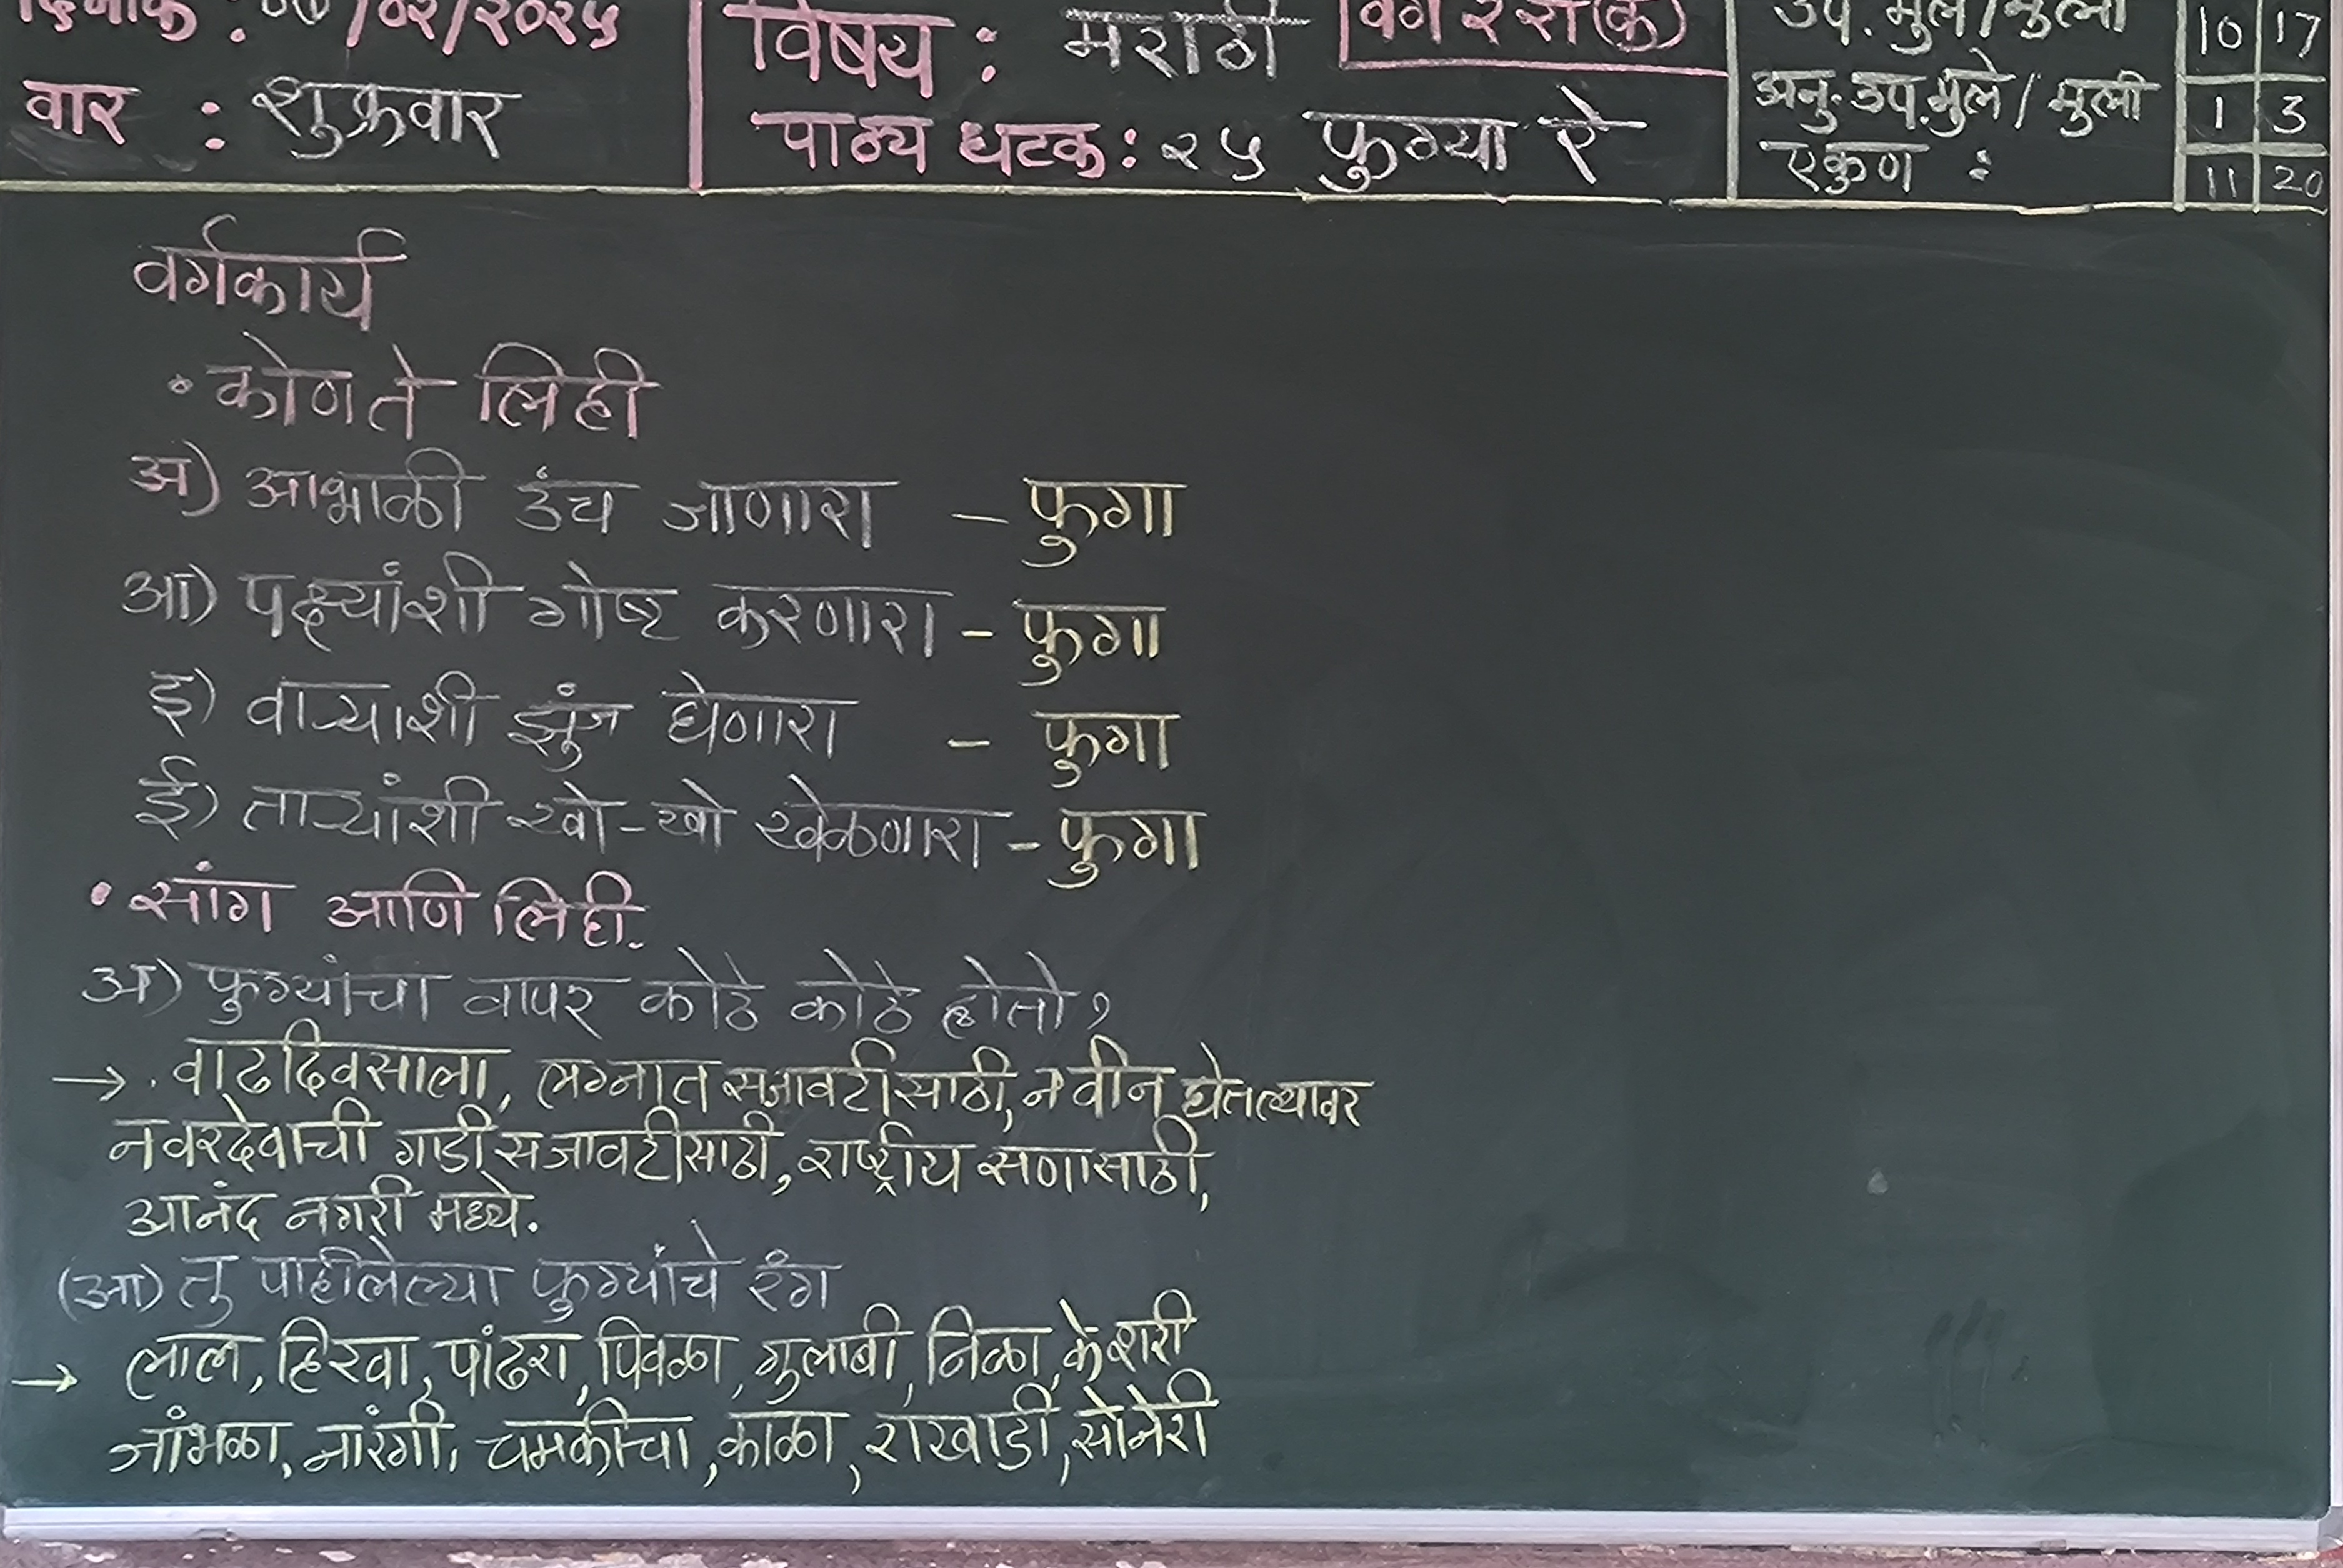 दिनांक : ०७/०२/२०२५
वार : शुक्रवार
विषय : मराठी
वर्ग २ रा (क)
पाठ्य घटक : २५ फुग्या रे
उप. मुले / मुली 10 17
अनु. उप. मुले / मुली 1 3
एकुण : 11 20
वर्गकार्य
• कोण ते लिही
अ) आभाळी उंच जाणारा – फुगा
आ) पक्ष्यांशी गोष्ट करणारा – फुगा
इ) वाऱ्याशी झुंज घेणारा – फुगा
ई) ताऱ्यांशी खो-खो खेळणारा – फुगा
• सांग आणि लिही.
अ) फुग्यांचा वापर कोठे कोठे होतो?
→ . वाढदिवसाला, लग्नात सजावटीसाठी, नवीन घेतल्यावर
नवरदेवाची गाडी सजावटीसाठी, राष्ट्रीय सणासाठी,
आनंद नगरी मध्ये.
(आ) तु पाहीलेल्या फुग्यांचे रंग
→ लाल, हिरवा, पांढरा, पिवळा, गुलाबी, निळा, केशरी
जांभळा, नारंगी, चमकीचा, काळा, राखाडी, सोनेरी